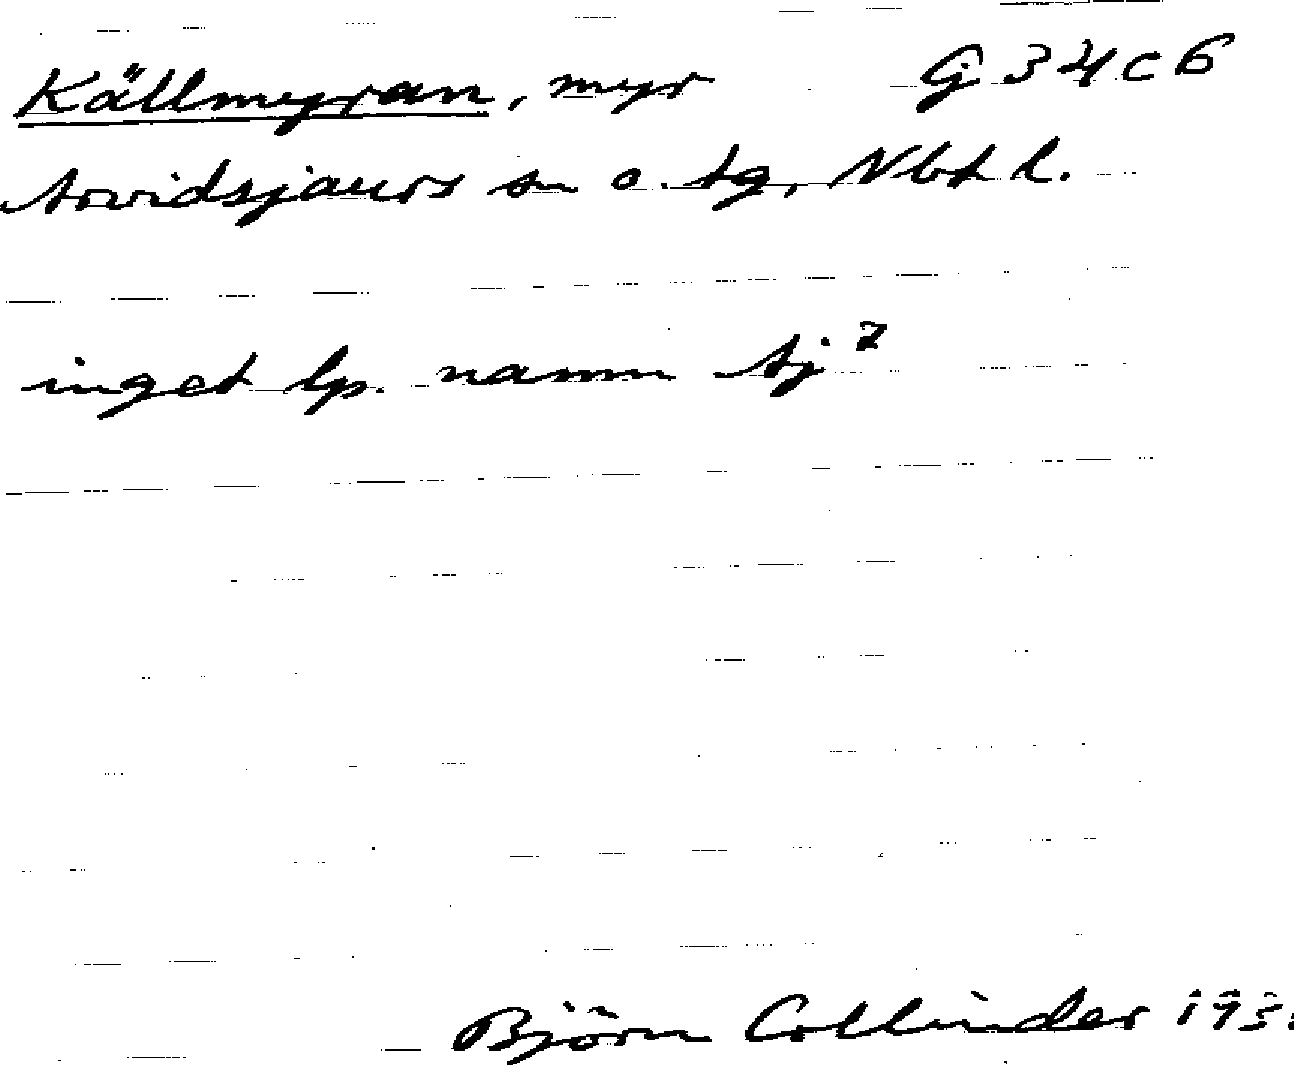 Källmyran, myr G 34 c 6
Arvidsjaurs sn o. tg, Nbt l.
inget lp. namn Aj 7
Björn Collinder 193